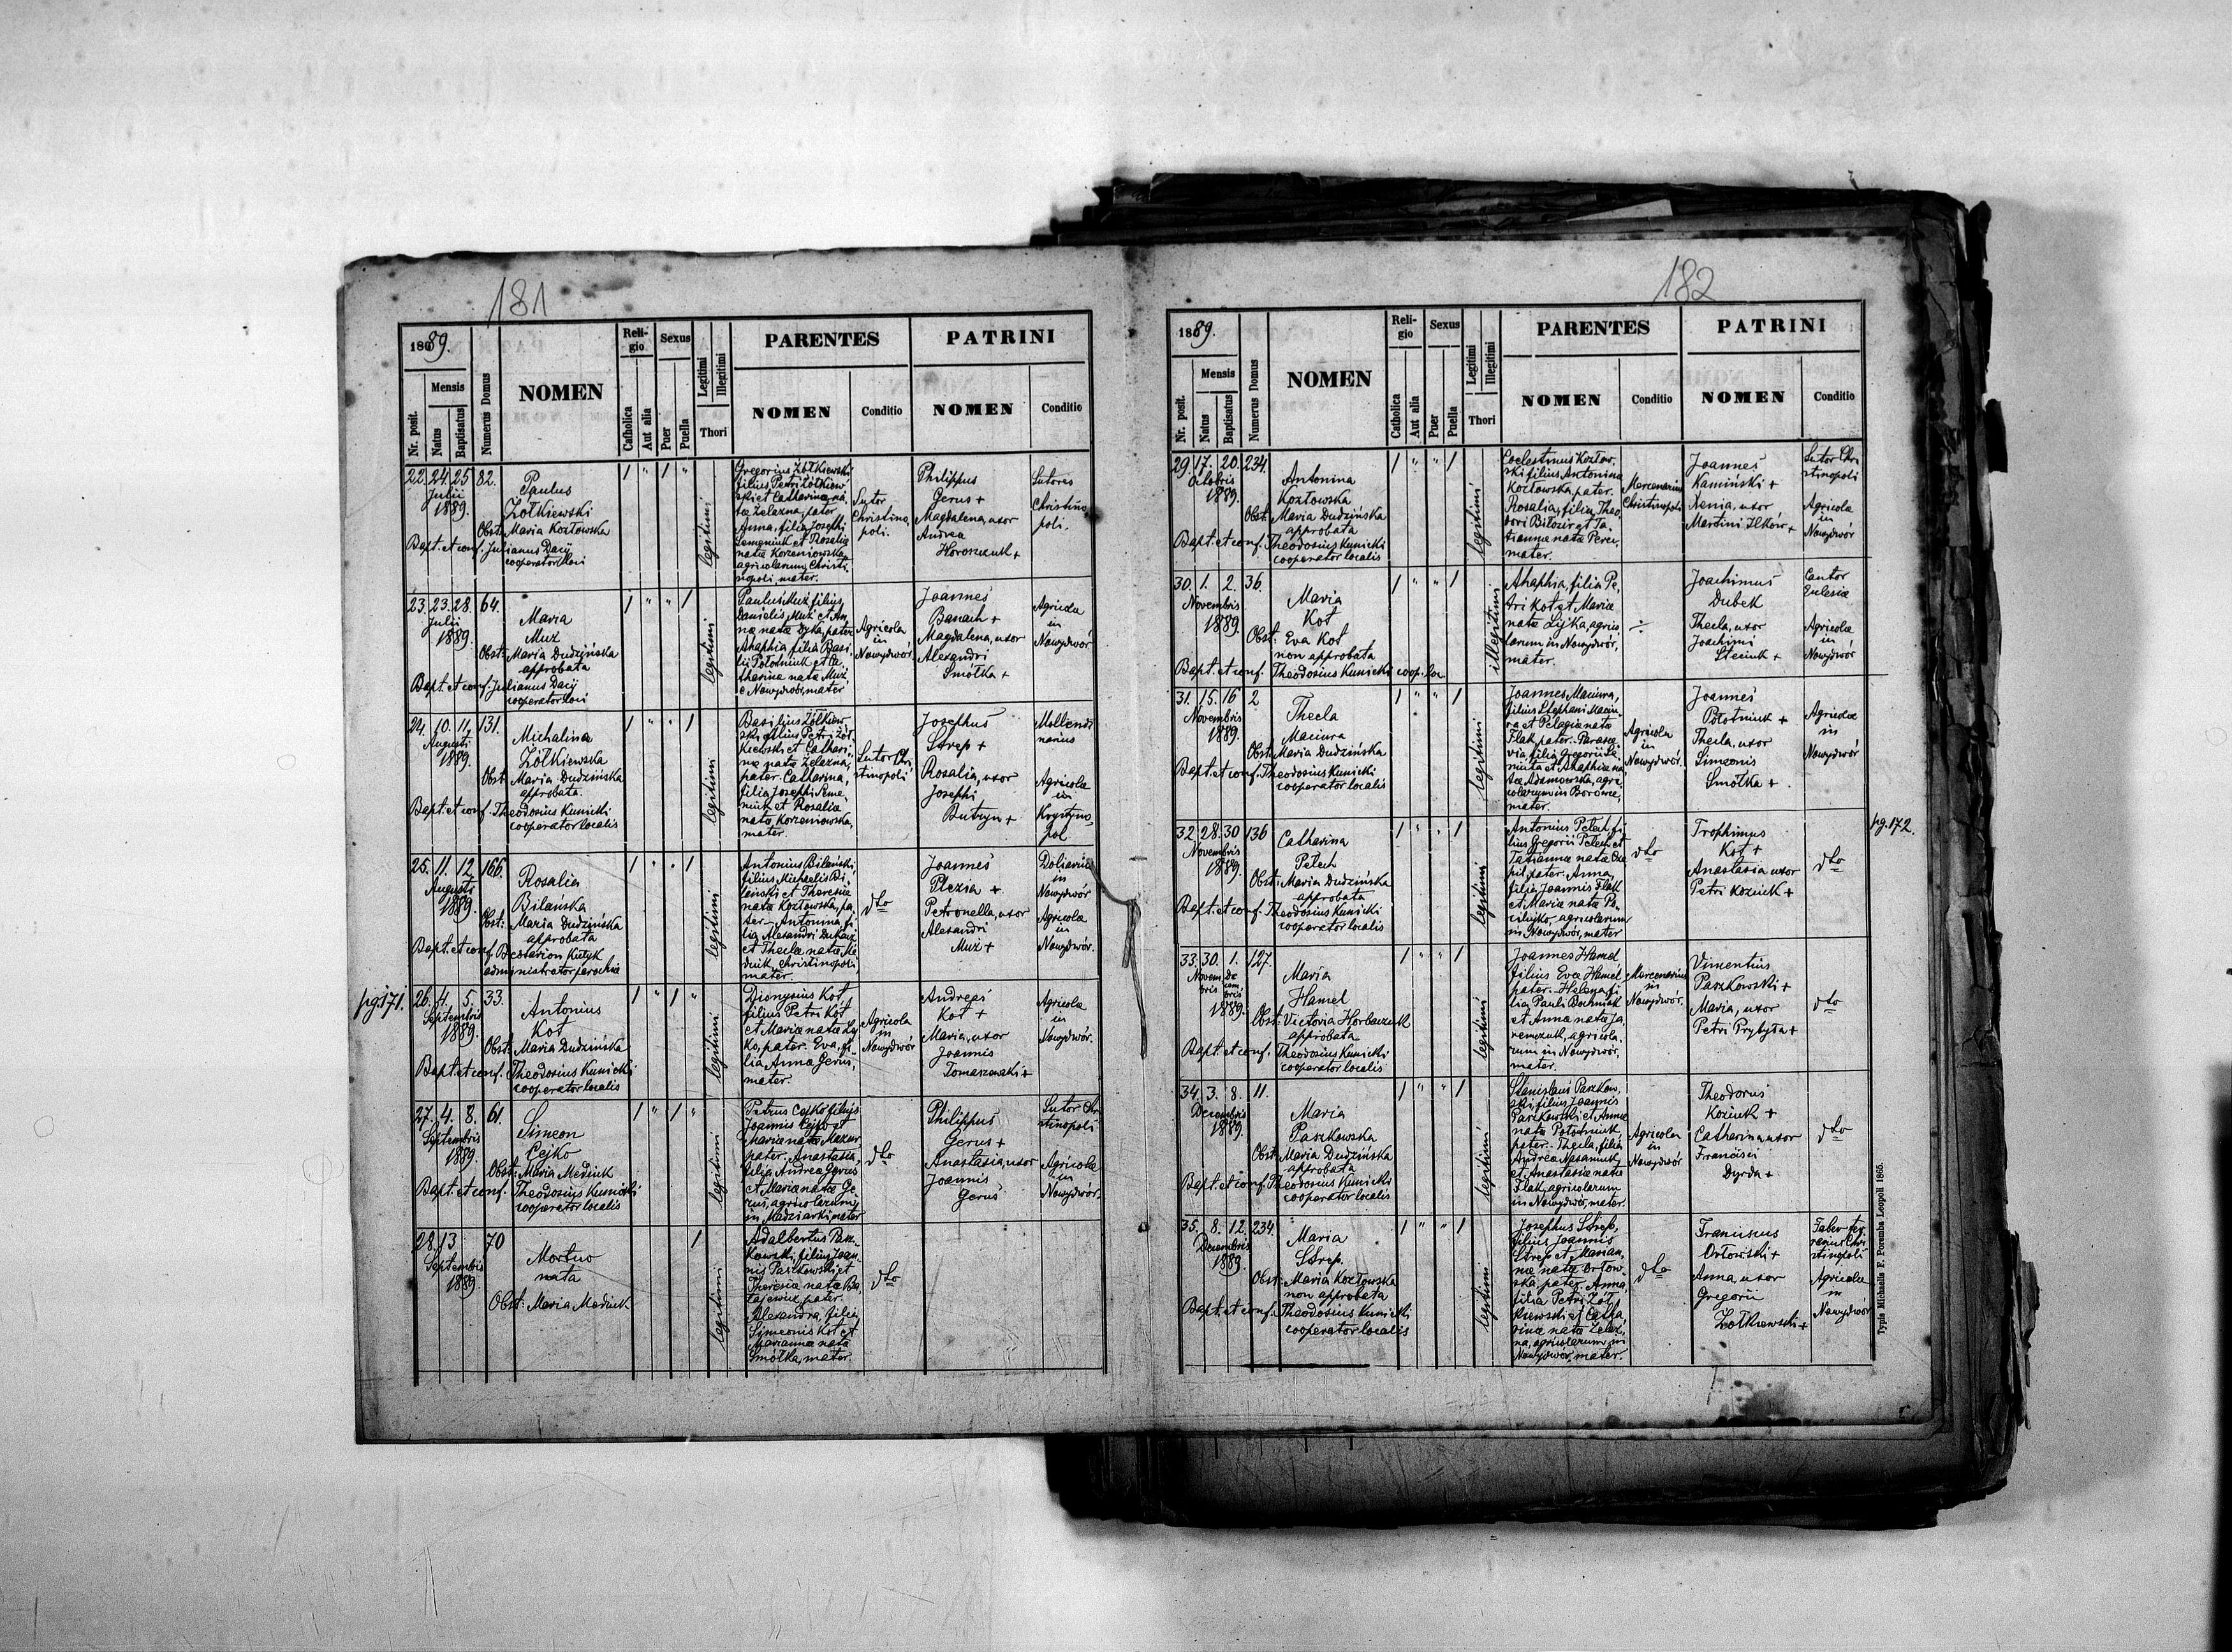 181
1889.
Reli-
gio
Sexus
Legitimi
Illegitimi
PARENTES
PATRINI
Mensis
Nr. posit.
Natus
Baptisatus
Numerus Domus
NOMEN
Catholica
Aut alia
Puer
Puella
Thori
NOMEN
Conditio
NOMEN
Conditio
22. 24. 25 82.
Julii
1889.
Paulus
Żółkiewski
Obst. Maria Kozłowska
Bapt. et conf. Julianus Dacij
cooperator loci
1 " 1 "
legitimi
Gregorius Żółkiewski
filius Petri Żółkiew-
ski et Catharinæ na-
tæ Żelazna, pater
Anna, filia Josephi
Semeniuk et Rosaliæ
natæ Korzeniowska
agricolarum Christi-
nopoli mater.
Sutor
Christino
poli.
Philippus
Gerus +
Magdalena, uxor
Andreæ
Hororzuk +
Sutores
Christino
poli.
23. 23. 28. 64.
Julii
1889.
Maria
Muz
Obst: Maria Dudzińska
approbata
Bapt. et conf. Julianus Dacij
cooperator loci
1 " " 1
legitimi
Paulus Muż, filius
Danielis Muż et An-
næ natæ Łyka, pater
Ahaphia filia Basi-
lii Połotniuk et Ca-
tharinæ natæ Muż
e Nowydwór, mater
Agricola
in
Nowydwór
Joannes
Banach +
Magdalena, uxor
Alexandri
Smołka +
Agricolæ
in
Nowydwór
24. 10. 11. 131.
Augusti
1889.
Michalina
Żółkiewska
Obst. Maria Dudzińska
approbata.
Bapt. et conf. Theodosius Kunicki
cooperator localis
1 " " 1
legitimi
Basilius Żółkiew-
ski, filius Petri Żół-
kiewski et Cathari-
næ natæ Żelazna,
pater. Catharina,
filia Josephi Seme-
niuk et Rosaliæ
natæ Korzeniowska,
mater.
Sutor Chri
stinopoli
Josephus
Strep +
Rosalia, uxor
Josephi
Butryn +
Mollendi
narius
Agricola
in
Krystyno-
pol
25. 11. 12. 166.
Augusti
1889.
Rosalia
Bilańska
Obst: Maria Dudzińska
approbata
Bapt. et conf. Bessarion Kutyk
administrator parochiæ
1 " " 1
legitimi
Antonius Bilański
filius Michaelis Bi-
lański et Theresiæ
natæ Kozłowska, pa-
ter. Antonina, fi-
lia Alexandri Dukacz
et Theclæ natæ Me-
diuk, Christinopoli
mater.
dto
Joannes
Plezia +
Petronella, uxor
Alexandri
Muż +
Doliarius
in
Nowydwór
Agricola
in
Nowydwór.
pg. 171.
26. 4. 5. 33.
Septembris
1889.
Antonius
Kot
Obst. Maria Dudzińska
Bapt. et conf. Theodosius Kunicki
cooperator localis
1 " 1 "
legitimi
Dionysius Kot
filius Petri Kot
et Mariæ natæ Ły-
ko, pater. Eva, fi-
lia Annæ Gerus,
mater.
Agricola
in
Nowydwór
Andreas
Kot +
Maria, uxor
Joannis
Tomaszewski +
Agricola
in
Nowydwór.
27. 4. 8. 61.
Septembris
1889.
Simeon
Cejko
Obst: Maria Mediuk
Bapt. et conf. Theodosius Kunicki
cooperator localis
1 " 1 "
legitimi
Petrus Cejko filius
Joannis Cejko et
Mariæ natæ Mazur
pater. Anastasia,
filia Andreæ Gerus
et Mariæ natæ Ge-
rus, agricolarum
in Madziarki mater
dto
Philippus
Gerus +
Anastasia, uxor
Joannis
Gerus
Sutor Chri
stinopoli
Agricola
in
Nowydwór.
28. 13 70
Septembris
1889.
Mortuo
nata
Obst: Maria Mediuk
1
legitimi
Adalbertus Pasz-
kowski, filius Joan-
nis Paszkowski et
Theresiæ natæ Ba-
tajewicz, pater.
Alexandra, filia
Simeonis Kot et
Mariannæ natæ
Smółka, mater.
dto
182
1889.
Reli-
gio
Sexus
Legitimi
Illegitimi
PARENTES
PATRINI
Mensis
Nr. posit.
Natus
Baptisatus
Numerus Domus
NOMEN
Catholica
Aut alia
Puer
Puella
Thori
NOMEN
Conditio
NOMEN
Conditio
29. 17. 20. 234.
Octobris
1889.
Antonina
Kozłowska
Obst: Maria Dudzińska
approbata
Bapt. et conf. Theodosius Kunicki
cooperator localis
1 " " 1
legitimi
Coelestinus Kozłow-
ski filius Antoninæ
Kozłowska, pater.
Rosalia, filia Theo
dori Biłozir et Ta-
tiannæ natæ Perec,
mater.
Mercenarius
Christinopoli
Joannes
Kamiński +
Xenia, uxor
Martini Ilków +
Sutor Chri-
stinopoli
Agricola
in
Nowydwór
30. 1. 2. 36.
Novembris
1889.
Maria
Kot
Obst: Eva Kot
non approbata
Bapt. et conf. Theodosius Kunicki coop. loc.
1 " " 1
illegitimi
Ahaphia, filia Pe-
tri Kot et Mariæ
natæ Łyka, agrico
larum in Nowydwór,
mater.
÷
Joachimus
Dubek
Thecla, uxor
Joachimi
Steciuk +
Cantor
Eclesiæ
Agricola
in
Nowydwór
31. 15. 16 2
Novembris
1889.
Thecla
Maciura
Obst. Maria Dudzińska
Bapt. et conf. Theodosius Kunicki
cooperator localis
1 " " 1
legitimi
Joannes Maciura,
filius Stephani Maciu-
ra et Pelagiæ natæ
Flak, pater. Parasce-
via filia Gregorii
et Ahaphiæ na-
tæ Adamowska, agri-
colarum in Borówce,
mater.
Agricola
in
Nowydwór.
Joannes
Połotniuk +
Thecla, uxor
Simeonis
Smółka +
Agricolæ
in
Nowydwór
32. 28. 30 136
Novembris
1889.
Catharina
Pełech
Obst: Maria Dudzińska
approbata
Bapt. et conf. Theodosius Kunicki
cooperator localis
1 " " 1
legitimi
Antonius Pelech, fi-
lius Gregorii Pelech et
Tatiannæ natæ Cza-
pil, pater. Anna,
filia Joannis Flak
et Mariæ natæ Po-
cilujko, agricolarum
in Nowydwór, mater
dto
Trophimus
Kot +
Anastasia uxor
Petri Koziuk +
dto
pg. 172.
33. 30. 1. 127.
Novem-
bris
De
cem-
bris
1889.
Maria
Hamel
Obst: Victoria Horbaczuk
approbata
Bapt. et conf. Theodosius Kunicki
cooperator localis
1 " " 1
legitimi
Joannes Hamel
filius Evæ Hamel
pater. Helena, fi-
lia Pauli Bochniak
et Annæ natæ Ja-
remczuk, agricola-
rum in Nowydwór,
mater.
Mercenarius
in
Nowydwór.
Vincentius
Paszkowski +
Maria, uxor
Petri Prybyła +
dto
34. 3. 8. 11.
Decembris
1889.
Maria
Paszkowska
Obst: Maria Dudzińska
approbata
Bapt. et conf. Theodosius Kunicki
cooperator localis
1 " " 1
legitimi
Stanislaus Paszkow-
ski filius Joannis
Paszkowski et Annæ
natæ Połotniuk
pater. Thecla, filia
Andreæ Nasaniuk
et Anastasiæ natæ
Flak, agricolarum
in Nowydwór, mater.
Agricola
in
Nowydwór
Theodorus
Koziuk +
Catharina, uxor
Francisci
Dyrda +
dto
35. 8. 12. 234.
Decembris
1889.
Maria
Strep.
Obst: Maria Kozłowska
non approbata
Bapt. et conf. Theodosius Kunicki
cooperator localis
1 " " 1
legitimi
Josephus Strep,
filius Joannis
Strep et Marian-
næ natæ Orłow-
ska, pater. Anna,
filia Petri Żół-
kiewski et Catha-
rinæ natæ Żelez-
na, agricolarum in
Nowydwór, mater.
dto
Franciscus
Orłowski +
Anna, uxor
Gregorii
Żółkiewski +
Faber fer-
rarius Chri
stinopoli
Agricola
in
Nowydwór
Typis Michaelis F. Poremba Leopoli 1865.